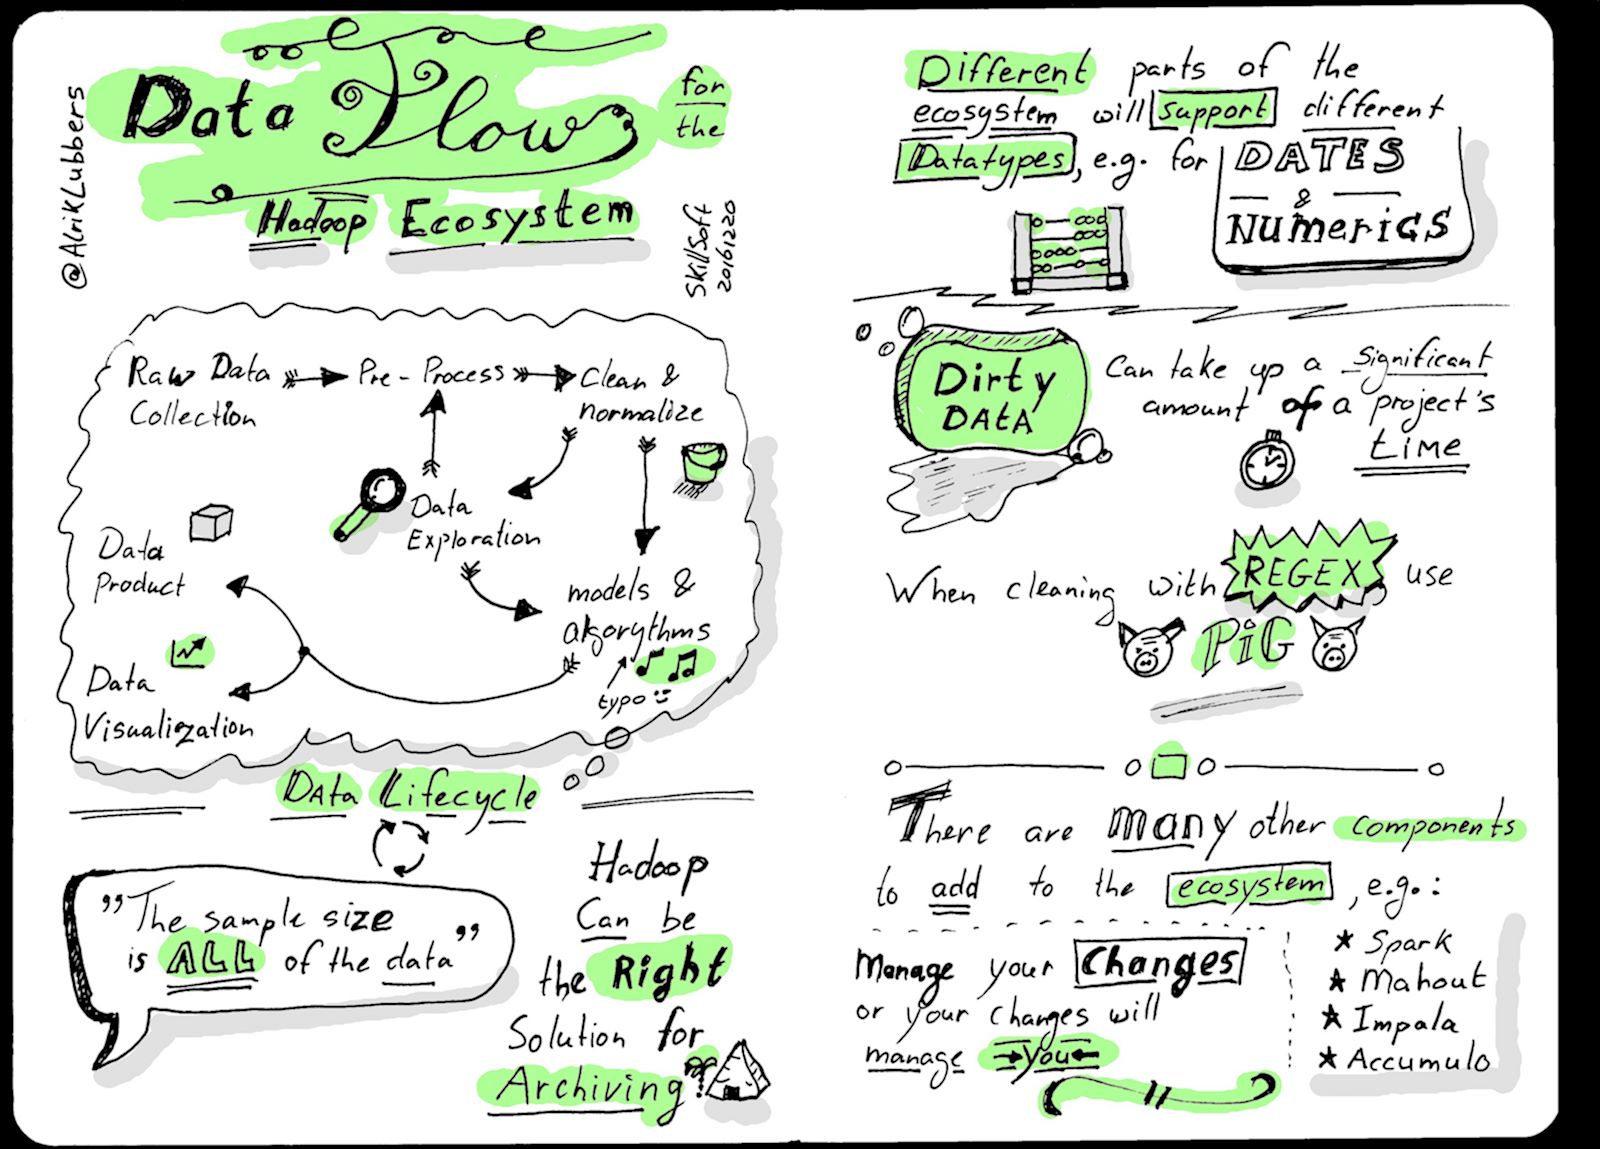 Data Flow for
the
Hadoop Ecosystem
@AlrikLubbers
SkillSoft
20161220
Raw Data
Collection
Pre-Process
Clean &
normalize
Data
Exploration
models &
algorythms
typo
Data
Product
Data
Visualization
Data Lifecycle
"The sample size
is ALL of the data"
Hadoop
Can be
the Right
Solution for
Archiving
Different parts of the
ecosystem will support different
Datatypes, e.g. for DATES
&
Numerics
Dirty
Data
Can take up a significant
amount of a project's
time
When cleaning with REGEX use
PiG
There are many other components
to add to the ecosystem, e.g.:
Manage your Changes
or your changes will
manage you
Spark
Mahout
Impala
Accumulo